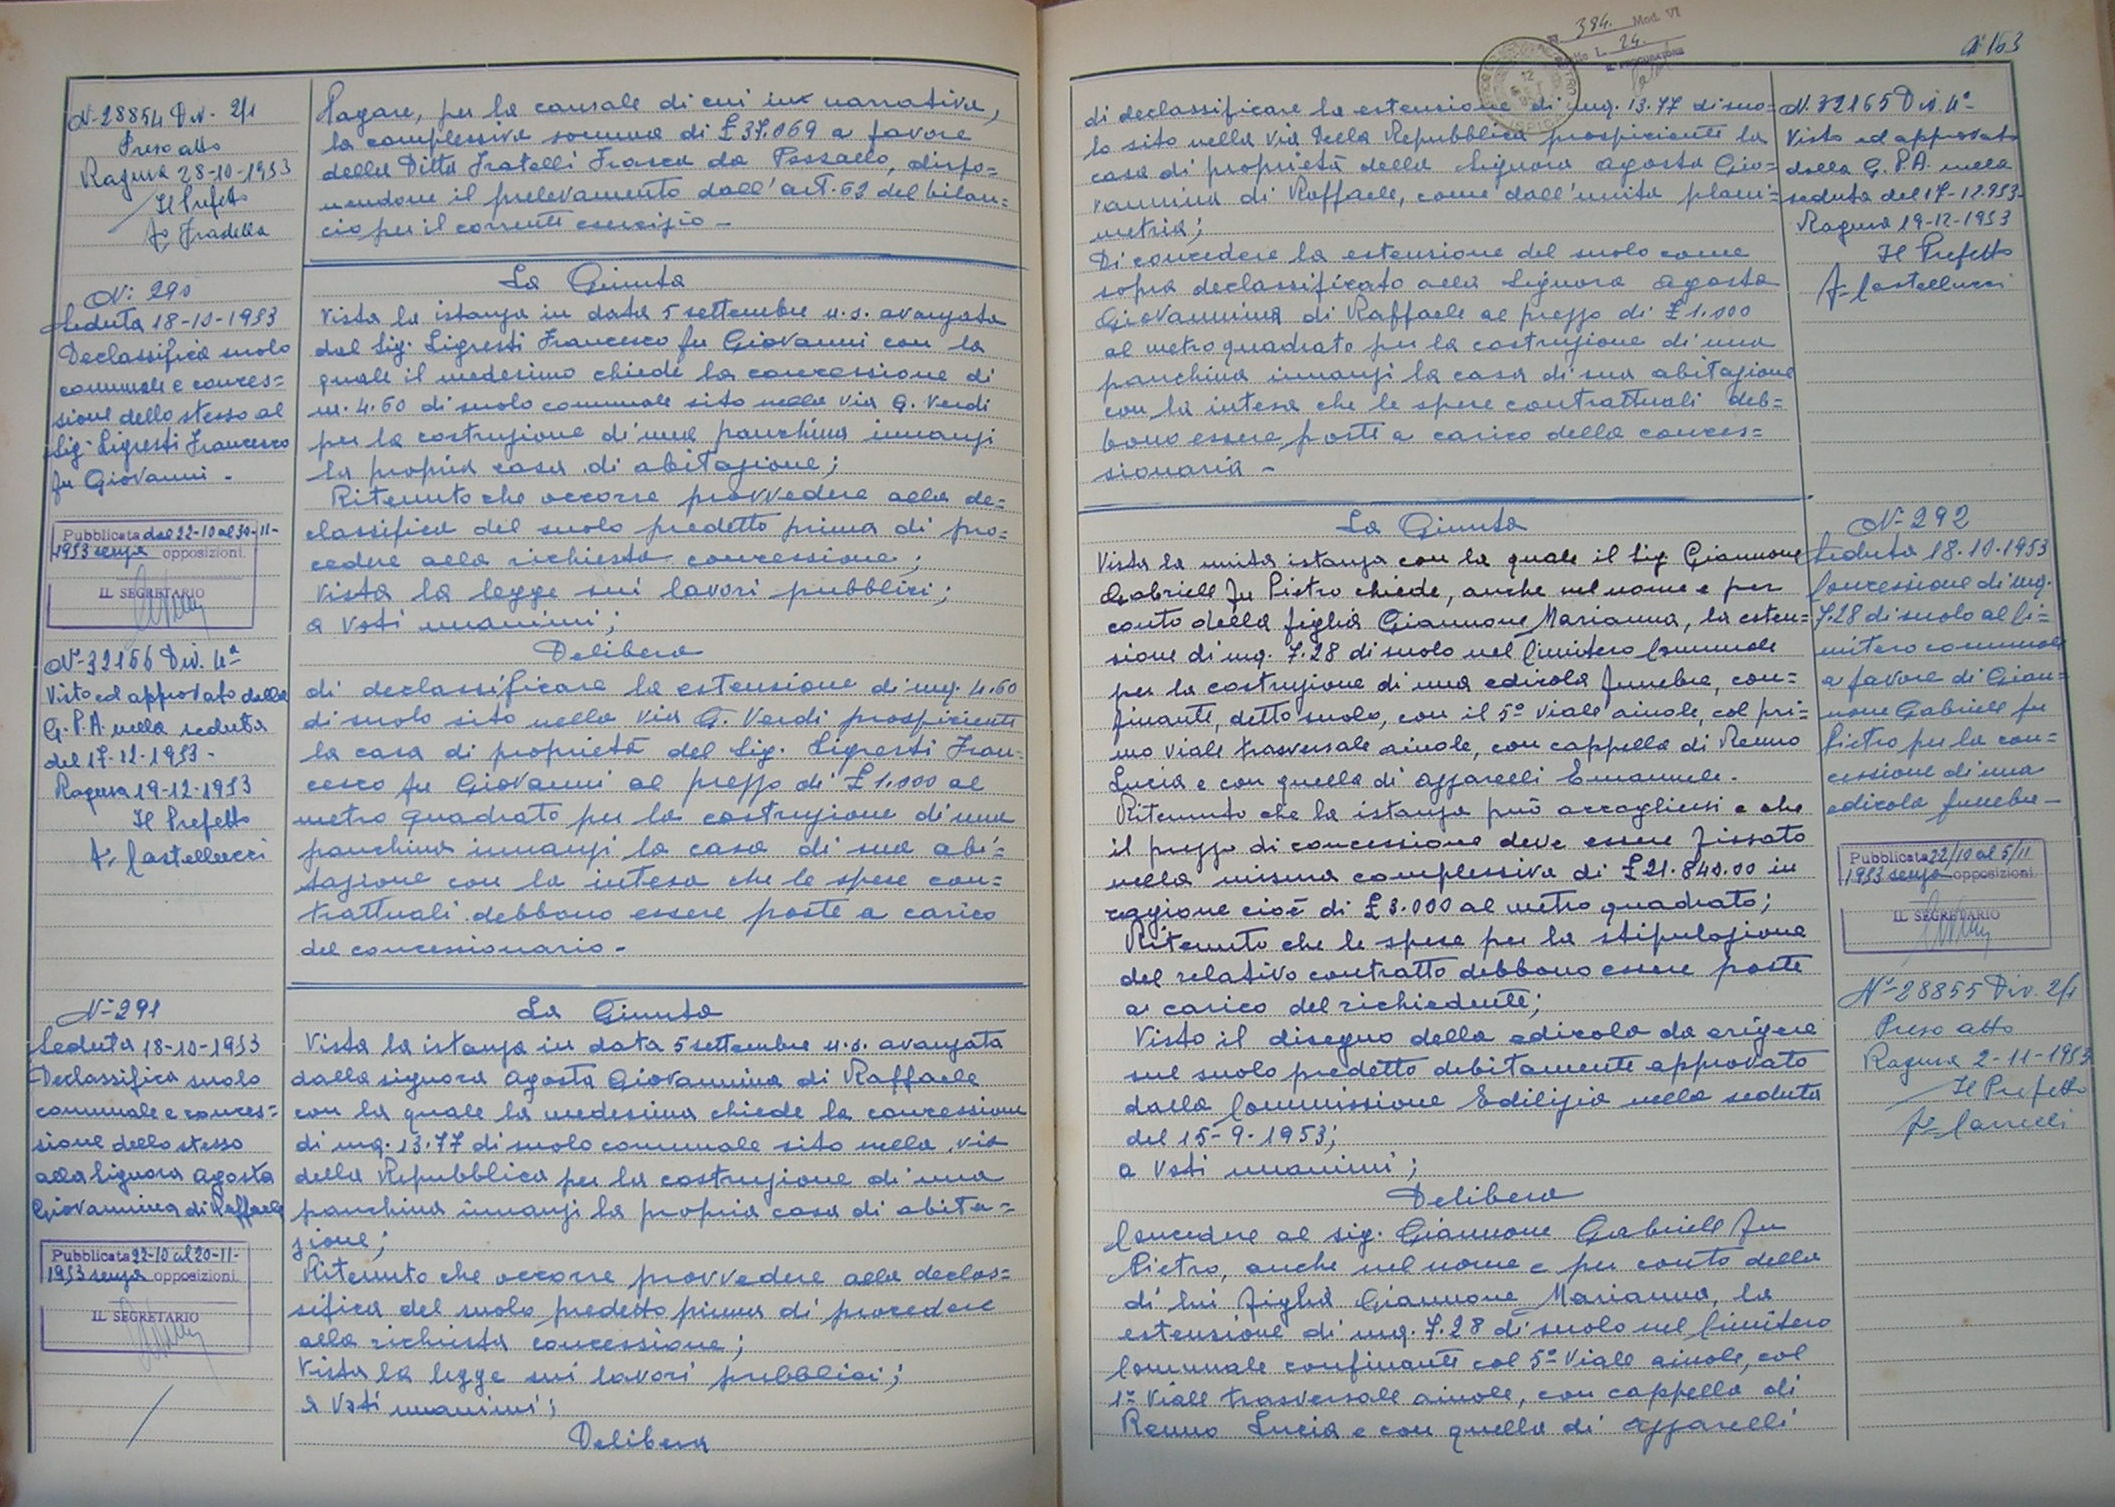 N. 28854 Div. 2/1
Preso atto
Ragusa 28-10-1953
Il Prefetto
Fo Fradella
N. 290
Seduta 18-10-1953
Declassifica suolo
comunale e conces=
sione dello stesso al
Sig. Ligresti Francesco
fu Giovanni -
Pubblicata dal 22-10 al 30-11-
1953 senza opposizioni.
IL SEGRETARIO
N. 32166 Div. 4a
Visto ed approvato dalla
G.P.A. nella seduta
del 17-12-1953-
Ragusa 19-12-1953
Il Prefetto
Fo Castellucci
N. 291
Seduta 18-10-1953
Declassifica suolo
comunale e conces=
sione dello stesso
alla Signora Agosta
Giovannina di Raffaele
Pubblicata 22-10 al 20-11-
1953 senza opposizioni.
IL SEGRETARIO
Pagare, per la causale di cui in narrativa,
la complessiva somma di £ 37.069 a favore
della Ditta Fratelli Frasca da Pozzallo, dispo=
nendone il prelevamento dall'art. 62 del bilan=
cio per il corrente esercizio -
La Giunta
Vista la istanza in data 5 settembre u.s. avanzata
dal Sig. Ligresti Francesco fu Giovanni con la
quale il medesimo chiede la concessione di
m. 4.60 di suolo comunale sito nella Via G. Verdi
per la costruzione di una panchina innanzi
la propria casa di abitazione;
Ritenuto che occorre provvedere alla de=
classifica del suolo predetto prima di pro=
cedere alla richiesta concessione;
Vista la legge sui lavori pubblici;
a voti unanimi;
Delibera
di declassificare la estensione di mq. 4.60
di suolo sito nella Via G. Verdi prospiciente
la casa di proprietà del Sig. Ligresti Fran=
cesco fu Giovanni al prezzo di £ 1.000 al
metro quadrato per la costruzione di una
panchina innanzi la casa di sua abi=
tazione con la intesa che le spese con=
trattuali debbono essere poste a carico
del concessionario -
La Giunta
Vista la istanza in data 5 settembre u.s. avanzata
dalla signora Agosta Giovannina di Raffaele
con la quale la medesima chiede la concessione
di mq. 13.77 di suolo comunale sito nella via
della Repubblica per la costruzione di una
panchina innanzi la propria casa di abita=
zione;
Ritenuto che occorre provvedere alla declas=
sifica del suolo predetto prima di procedere
alla richiesta concessione;
Vista la legge sui lavori pubblici;
a voti unanimi;
Delibera
394. Mod. VI
L. 24.
IL PROCURATORE
163
di declassificare la estensione di mq. 13.77 di suo=
lo sito nella Via della Repubblica prospiciente la
casa di proprietà della Signora Agosta Gio=
vannina di Raffaele, come dall'unita plani=
metria;
Di concedere la estensione del suolo come
sopra declassificato alla Signora Agosta
Giovannina di Raffaele al prezzo di £ 1.000
al metro quadrato per la costruzione di una
panchina innanzi la casa di sua abitazione
con la intesa che le spese contrattuali deb=
bono essere poste a carico della conces=
sionaria -
La Giunta
Vista la unita istanza con la quale il Sig. Giannone
Gabriele fu Pietro chiede, anche nel nome e per
conto della figlia Giannone Marianna, la esten=
sione di mq. 7.28 di suolo nel Cimitero Comunale
per la costruzione di una edicola funebre, con=
finante, detto suolo, con il 5° Viale aiuole, col pri=
mo viale trasversale aiuole, con cappella di Renno
Lucia e con quella di Azzarelli Emanuele.
Ritenuto che la istanza può accogliersi e che
il prezzo di concessione deve essere fissato
nella misura complessiva di £ 21.840.00 in
ragione cioè di £ 3.000 al metro quadrato;
Ritenuto che le spese per la stipulazione
del relativo contratto debbono essere poste
a carico del richiedente;
Visto il disegno della edicola da erigere
sul suolo predetto debitamente approvato
dalla Commissione Edilizia nella seduta
del 15-9-1953;
a voti unanimi;
Delibera
Concedere al sig. Giannone Gabriele fu
Pietro, anche nel nome e per conto della
di lui figlia Giannone Marianna, la
estensione di mq. 7.28 di suolo nel Cimitero
Comunale confinante col 5° Viale aiuole, col
1° Viale trasversale aiuole, con cappella di
Renno Lucia e con quella di Azzarelli
N. 32165 Div. 4a
Visto ed approvato
dalla G.P.A. nella
seduta del 17-12-953-
Ragusa 19-12-1953
Il Prefetto
Fo Castellucci
N. 292
Seduta 18.10.1953
Concessione di mq.
7.28 di suolo al Ci=
mitero comunale
a favore di Gian=
none Gabriele fu
Pietro per la con=
cessione di una
edicola funebre -
Pubblicata 22/10 al 5/11
1953 senza opposizioni
IL SEGRETARIO
N. 28855 Div. 2/1
Preso atto
Ragusa 2-11-1953
Il Prefetto